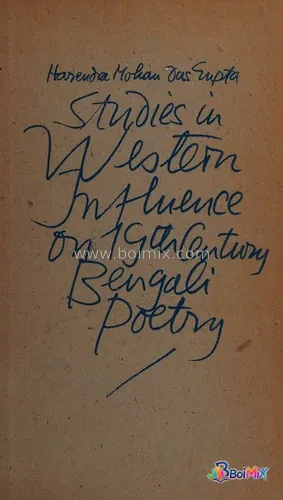 Harendra Mohan Das Gupta
Studies in
Western
Influence
on 19th Century
www.boimix.com
Bengali
Poetry
BoiMiX